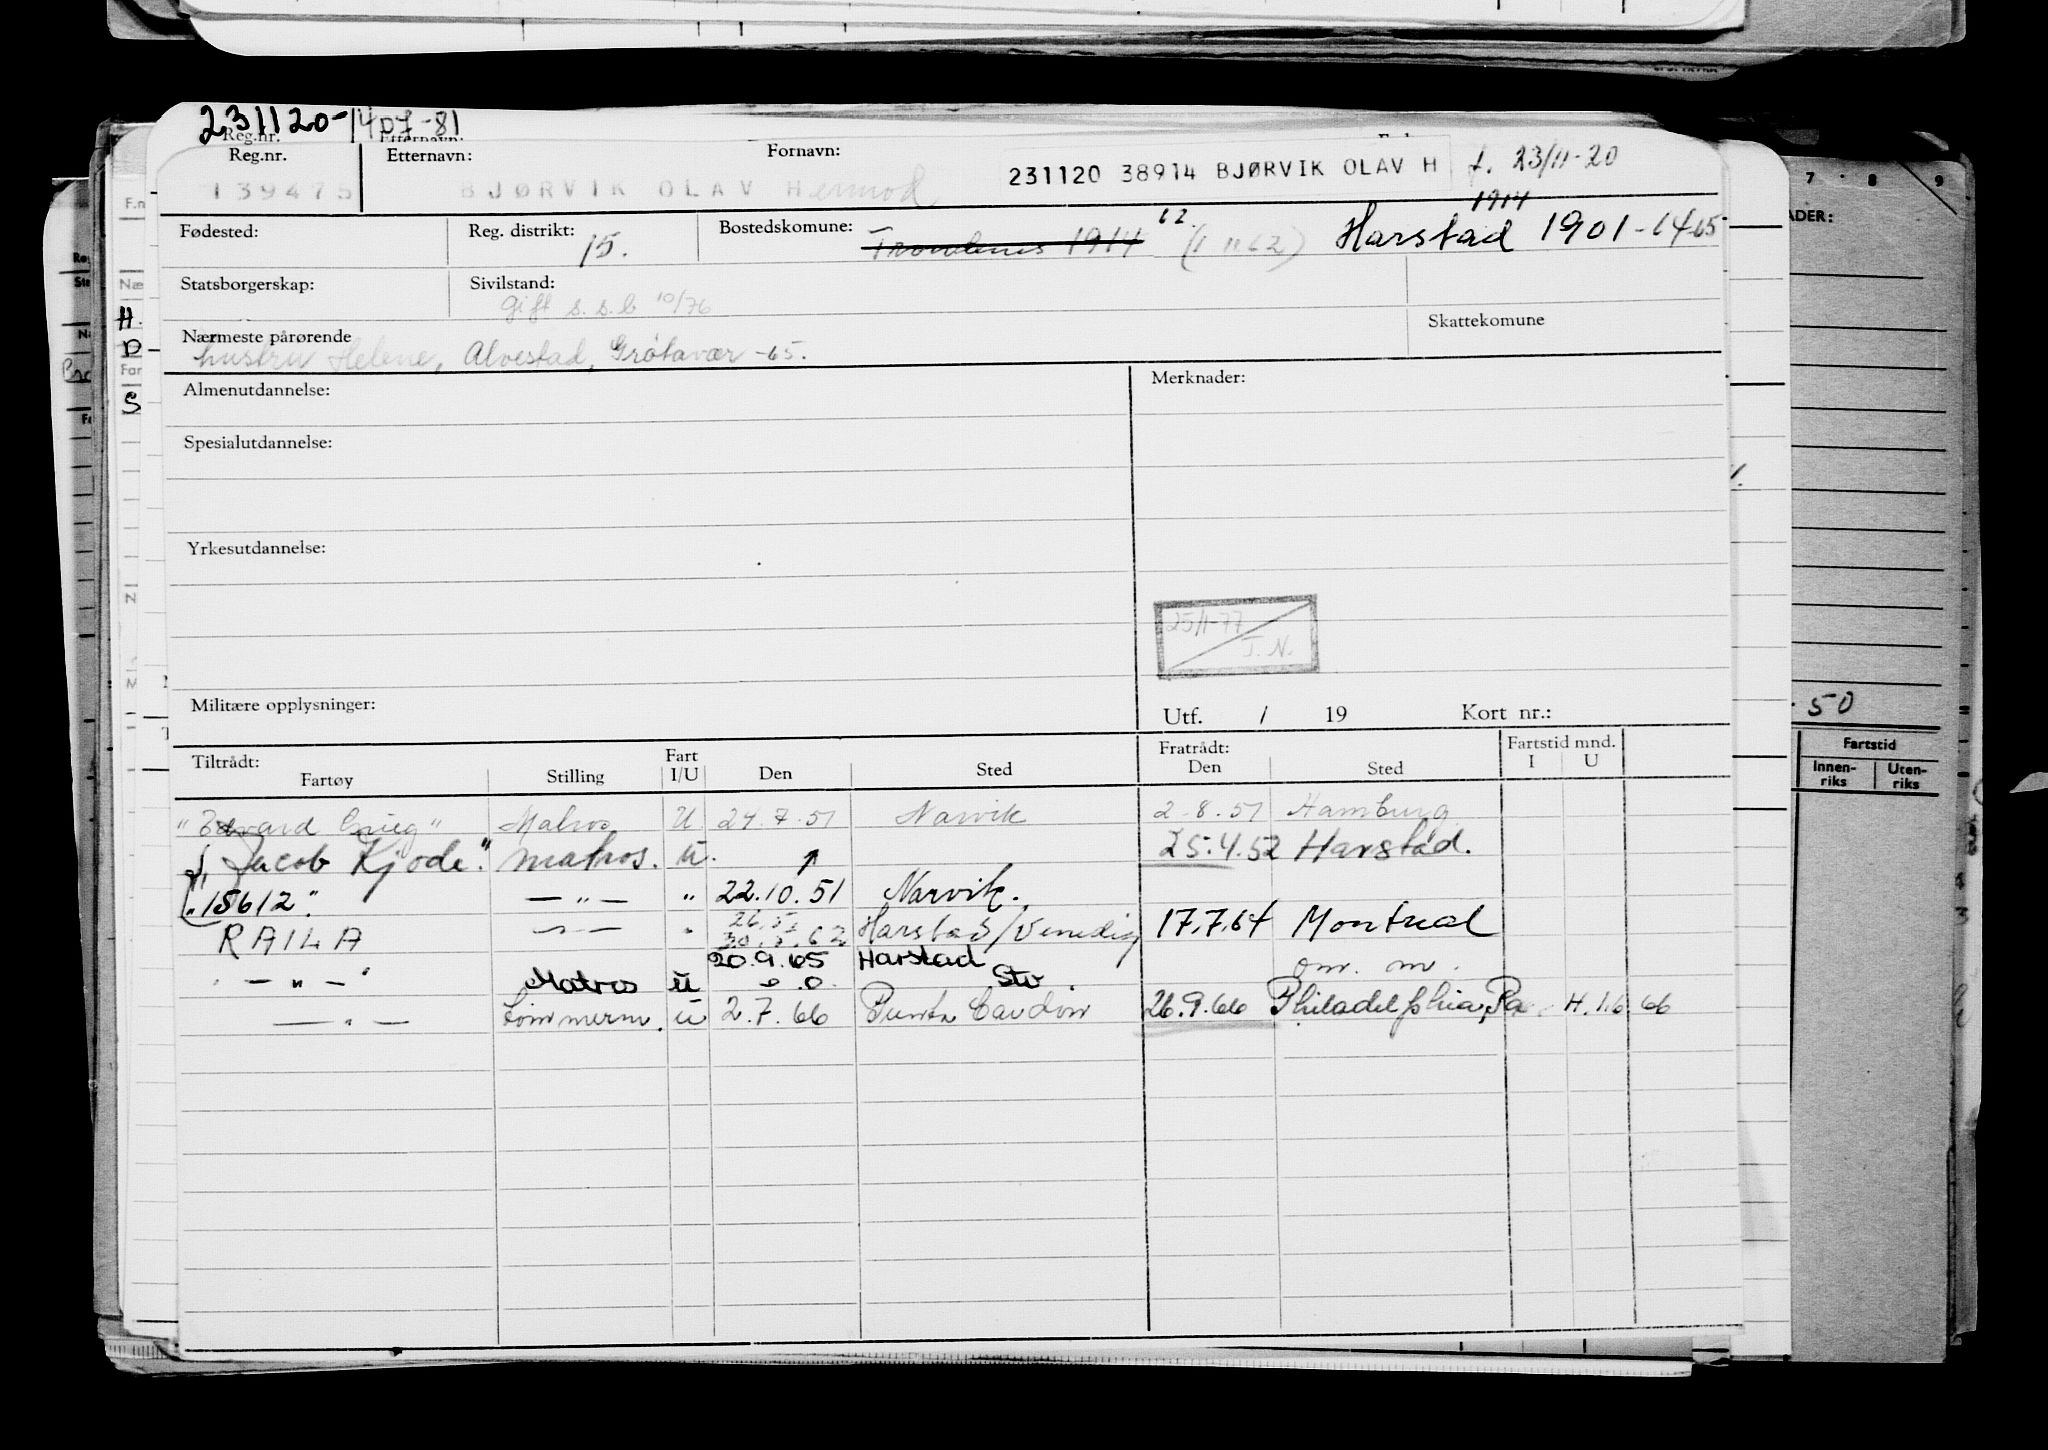 231120-1407-81
Reg.nr. Etternavn:
Reg.nr. Etternavn: Fornavn:
139475 BJØRVIK OLAV Hermod 231120 38914 BJØRVIK OLAV H f. 23/11-20
Fødested: Reg. distrikt: 15. Bostedskomune: Trondenes 1914 62. (1 11 62) 1914 Harstad 1901-14-65
Statsborgerskap: Sivilstand:
Gift s.s.b 10/76
Nærmeste pårørende Skattekomune
hustru Helene, Alvestad, Grøtavær -65.
Almenutdannelse: Merknader:
Spesialutdannelse:
Yrkesutdannelse:
25/1-77
J. N.
Militære opplysninger: Utf. / 19 Kort nr.:
Tiltrådt: Fart Fratrådt: Fartstid mnd.
Fartøy Stilling I/U Den Sted Den Sted I U
"Edvard Grieg" Matros U 24.7.51 Narvik 2-8.51 Hamburg
"Jacob Kjøde". matros. U. 25.4.52 Harstad.
"15612". — " — " 22.10.51 Narvik.
RAILA — " — " 26.5 30.5.62 Harstad/Venedig 17.7.64 Montreal
20.9.65 Harstad
— " — Matros U Stv. om. m.
— " — Tømmerm. U 2.7.66 Punta Cardon 26.9.66 Philadelphia, Pa. H. 1.6.66
7 8 9
50
Fartstid
Innen-riks Uten-riks